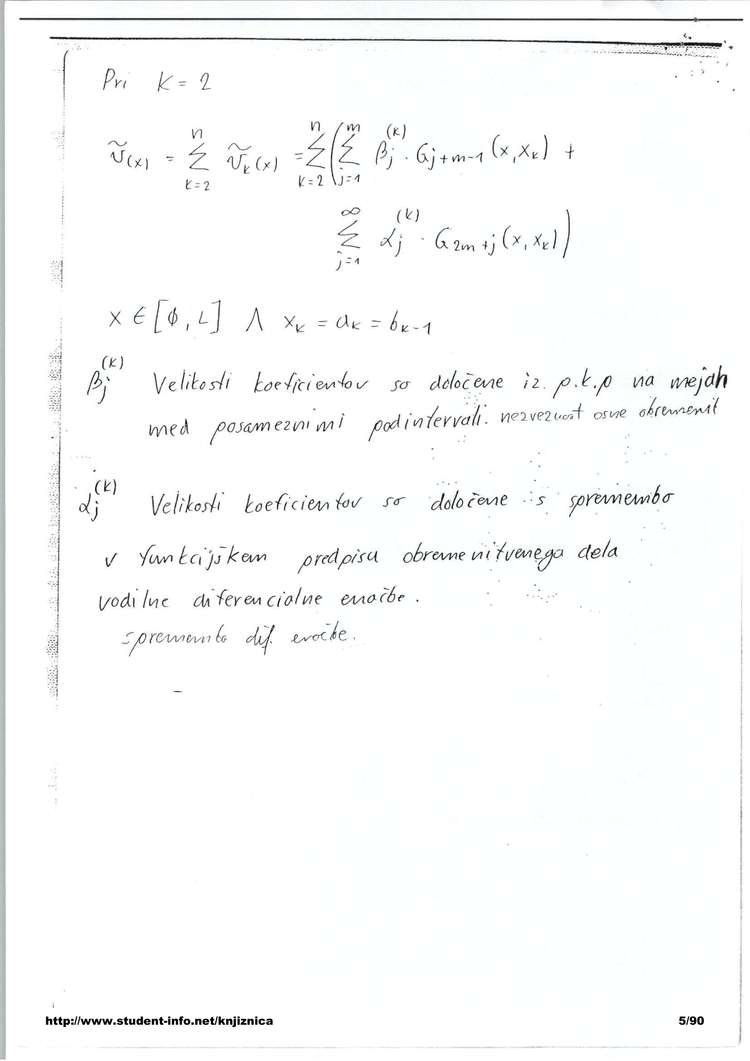 Pri K = 2
ṽ(x) = Σ_{k=2}^{n} ṽ_k(x) = Σ_{k=2}^{n} ( Σ_{j=1}^{m} β_j^{(k)} · G_{j+m-1}(x, x_k) +
Σ_{j=1}^{∞} α_j^{(k)} · G_{2m+j}(x, x_k) )
x ∈ [Φ, L] ∧ x_k = a_k = b_{k-1}
β_j^{(k)} Velikosti koeficientov so določene iz. p.k.p na mejah
med posameznimi podintervali. nezveznost osne obremenit
α_j^{(k)} Velikosti koeficientov so določene s spremembo
v funkcijskem predpisu obremenitvenega dela
vodilne diferencialne enačbe.
sprememba dif. enačbe.
http://www.student-info.net/knjiznica 5/90